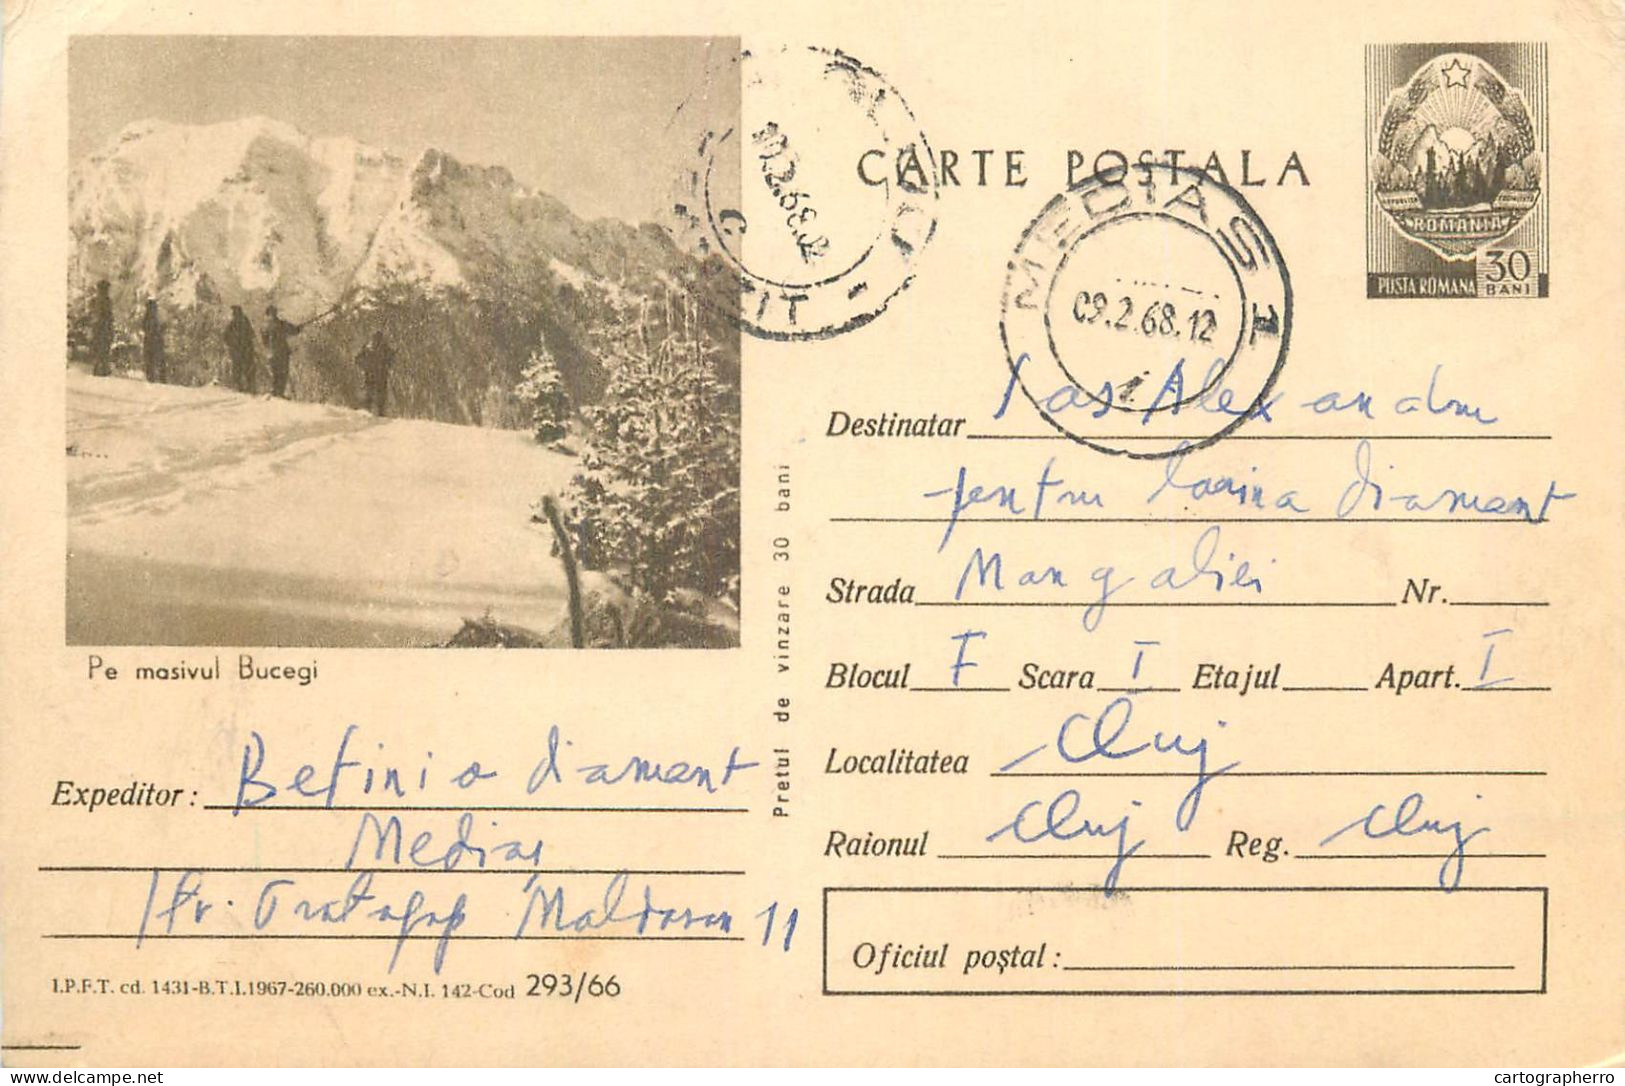 CARTE POSTALA
REPUBLICA SOCIALISTA
ROMANIA
30
POSTA ROMANA BANI
10.2.68
SOSIT
MEDIAS 1
09.2.68.12
Pe masivul Bucegi
Pretul de vinzare 30 bani
Destinatar Alexandru
pentru diamant
Strada Mangaliei Nr.
Blocul F Scara I Etajul Apart. I
Localitatea Cluj
Raionul Cluj Reg. Cluj
Oficiul poştal :
Expeditor : diamant
Mediaş
Str. 11
I.P.F.T. cd. 1431-B.T.I.1967-260.000 ex.-N.I. 142-Cod 293/66
cartographerro
www.delcampe.net